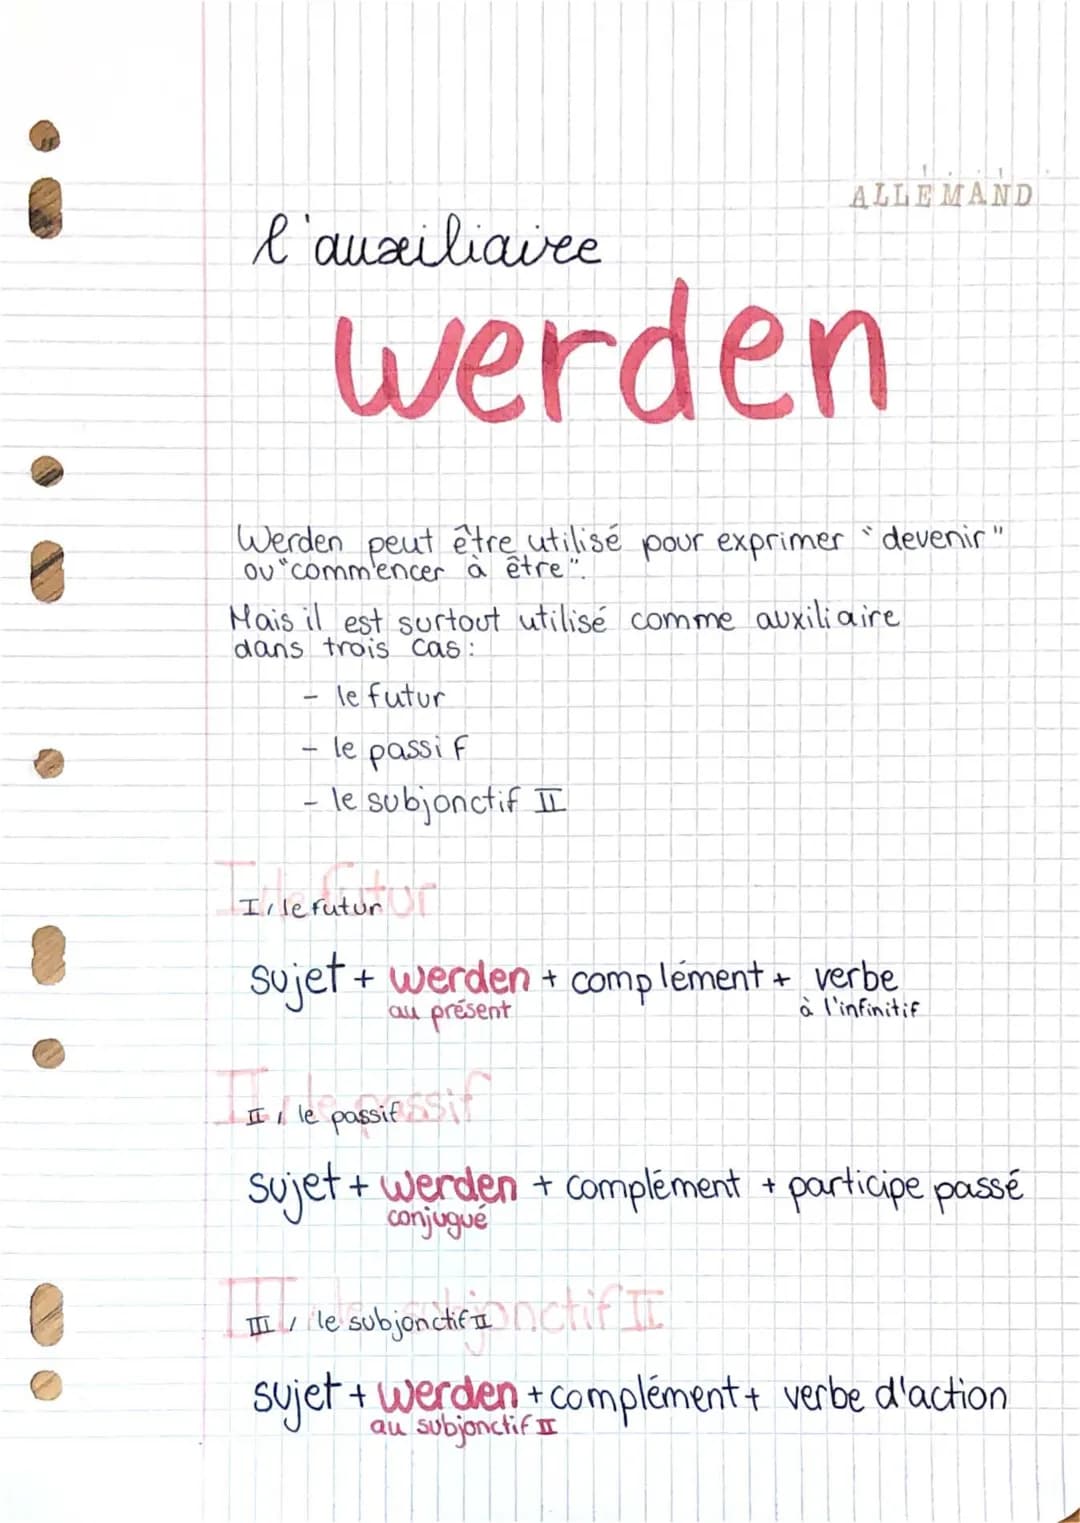 ALLEMAND
l'auxiliaire
werden
Werden peut être utilisé pour exprimer "devenir"
ou "commencer à être".
Mais il est surtout utilisé comme auxiliaire
dans trois cas:
- le futur
- le passif
- le subjonctif II
I, le futur
I, le futur
sujet + werden + complément + verbe
au présent à l'infinitif
II, le passif
II, le passif
sujet + werden + complément + participe passé
conjugué
III, le subjonctif II
III, le subjonctif II
sujet + werden + complément + verbe d'action
au subjonctif II